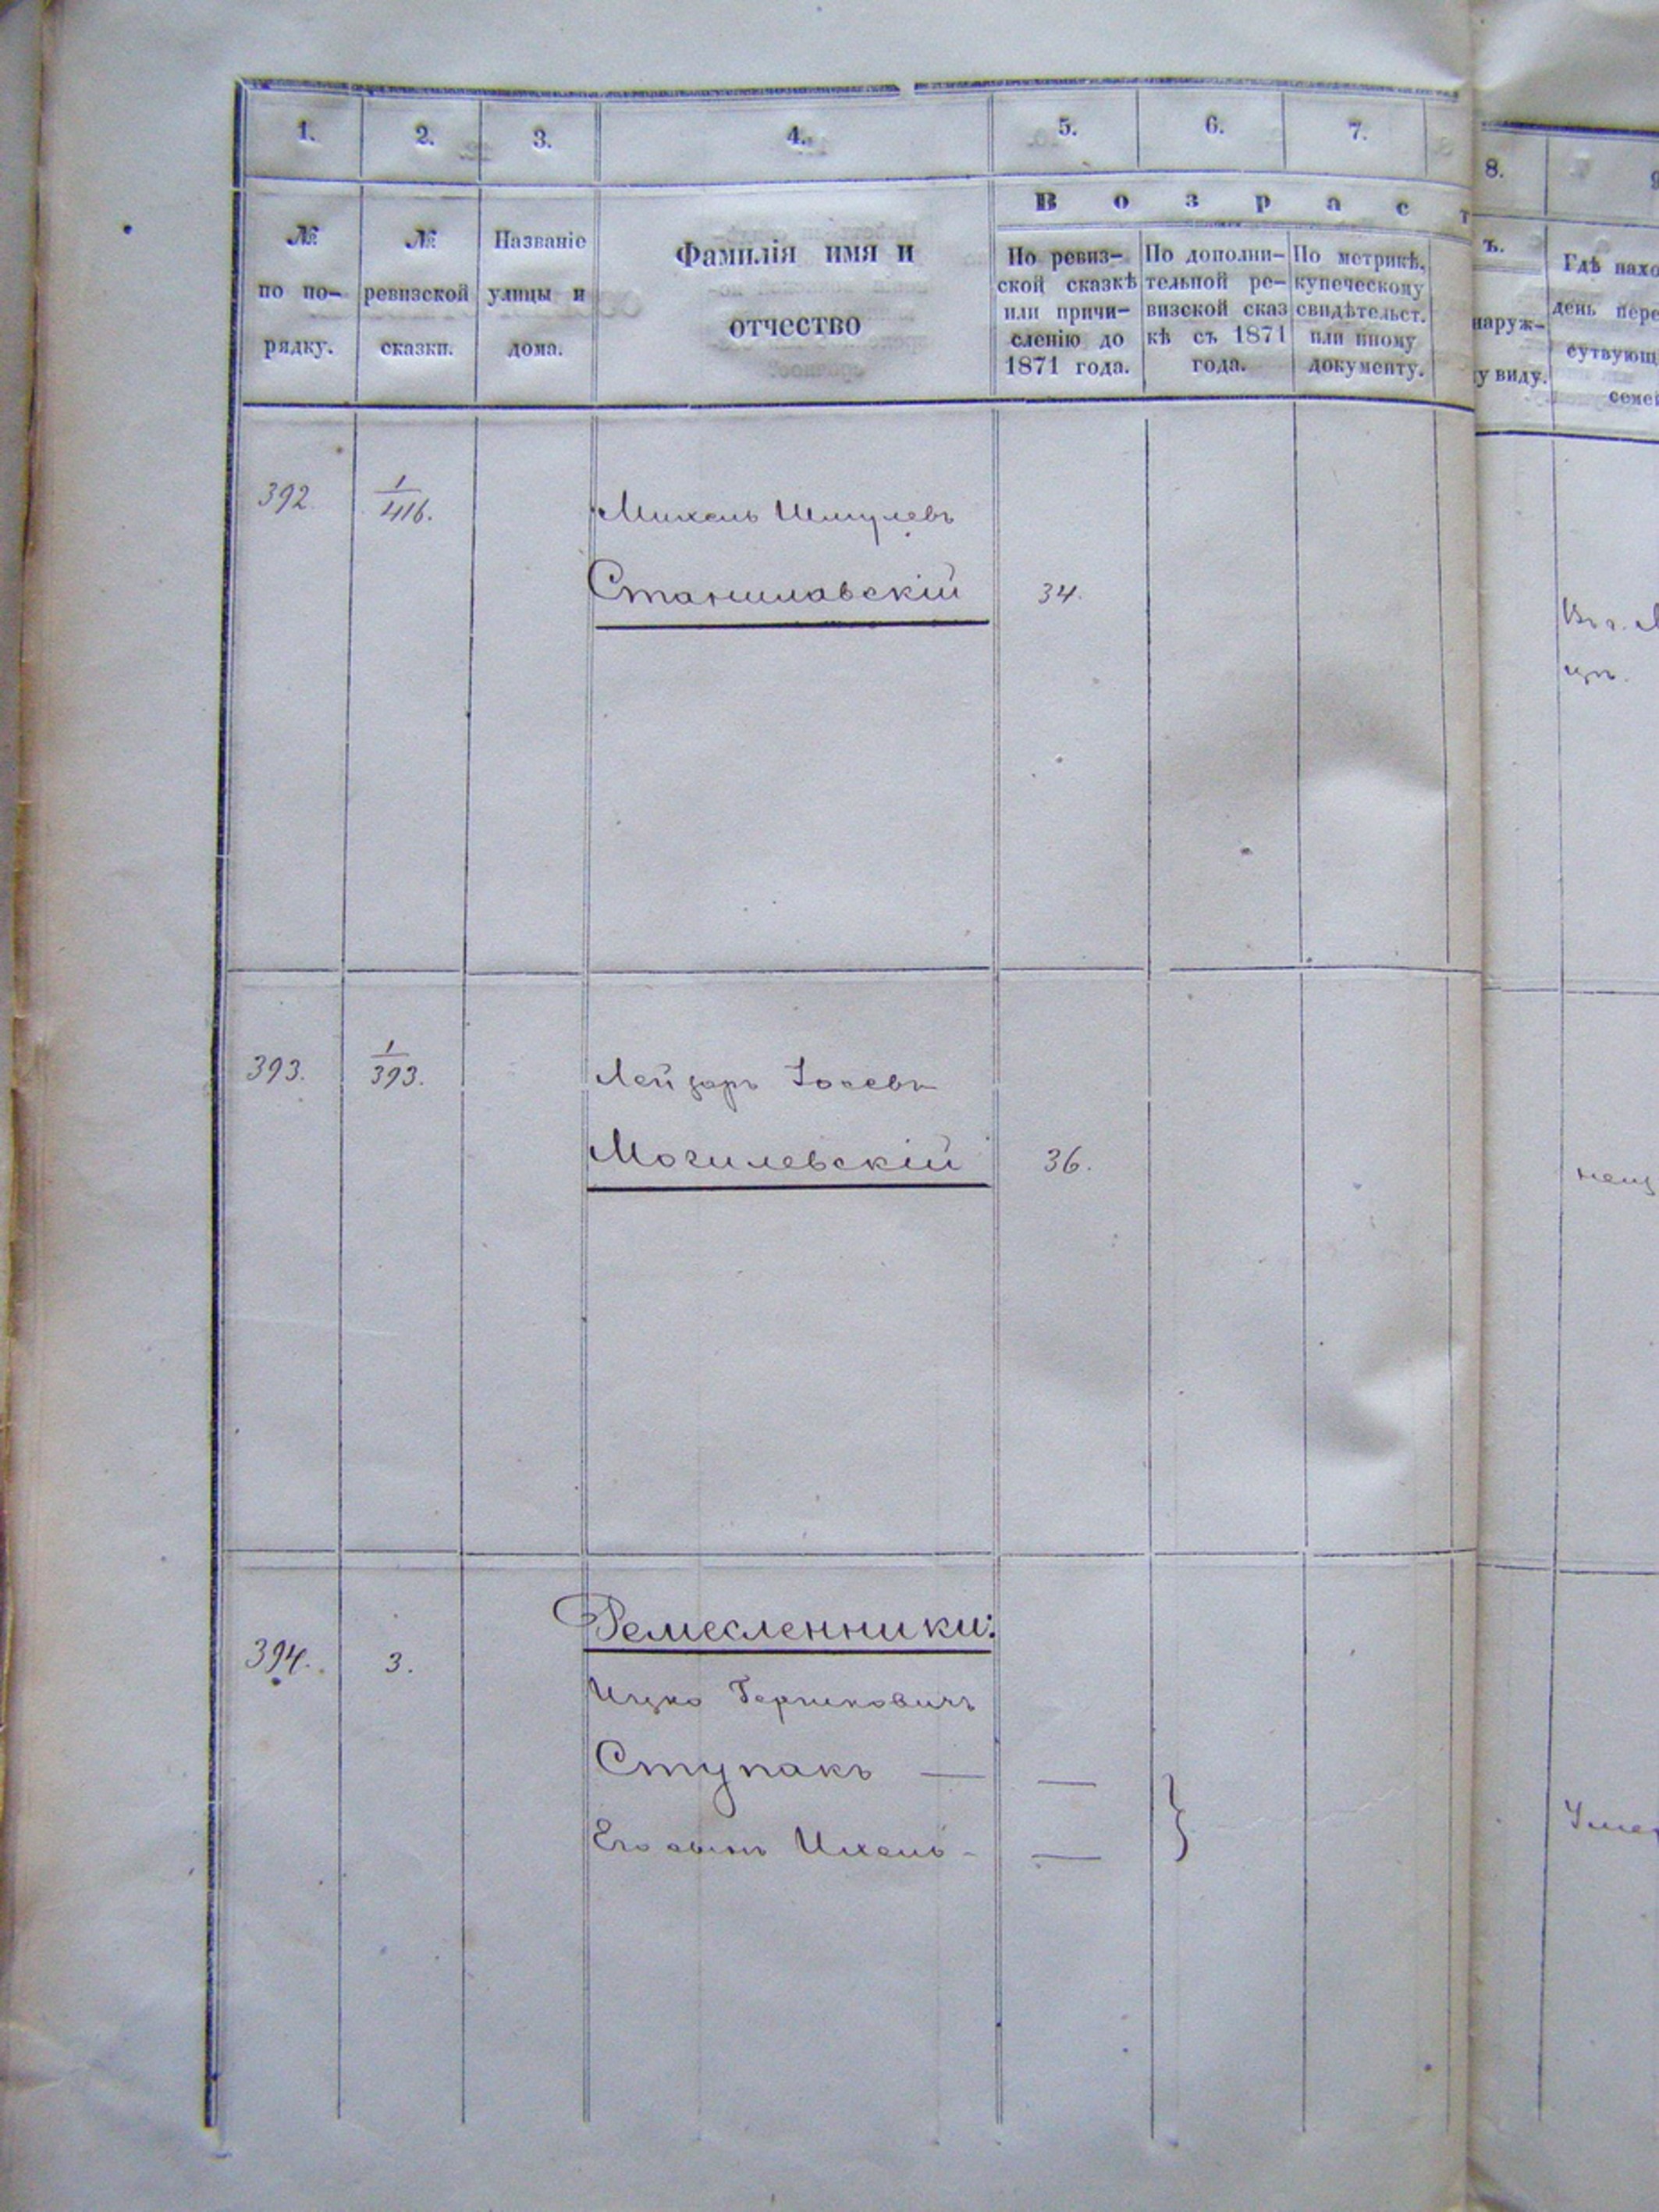 1. 2. 3. 4. 5. 6. 7.
8.
В о з р а с т
ъ.
№ по порядку.
№ ревизской сказки.
Названіе улицы и дома.
Фамилія имя и
отчество
По ревиз-
ской сказкѣ
или причи-
сленію до
1871 года.
По дополни-
тельной ре-
визской сказ
кѣ съ 1871
года.
По метрикѣ,
купеческому
свидѣтельст.
или иному
документу.
наруж-
у виду.
Гдѣ нахо
день пере
сутвующ
семей
392 1/416. Михель Шмулевъ
Станиславскій 34.
393. 1/393. Лейзаръ Іосевъ
Могилевскій 36.
Ремесленники:
394. 3.
Ицко Гершковичъ
Ступакъ — —
Его сынъ Ихель - —